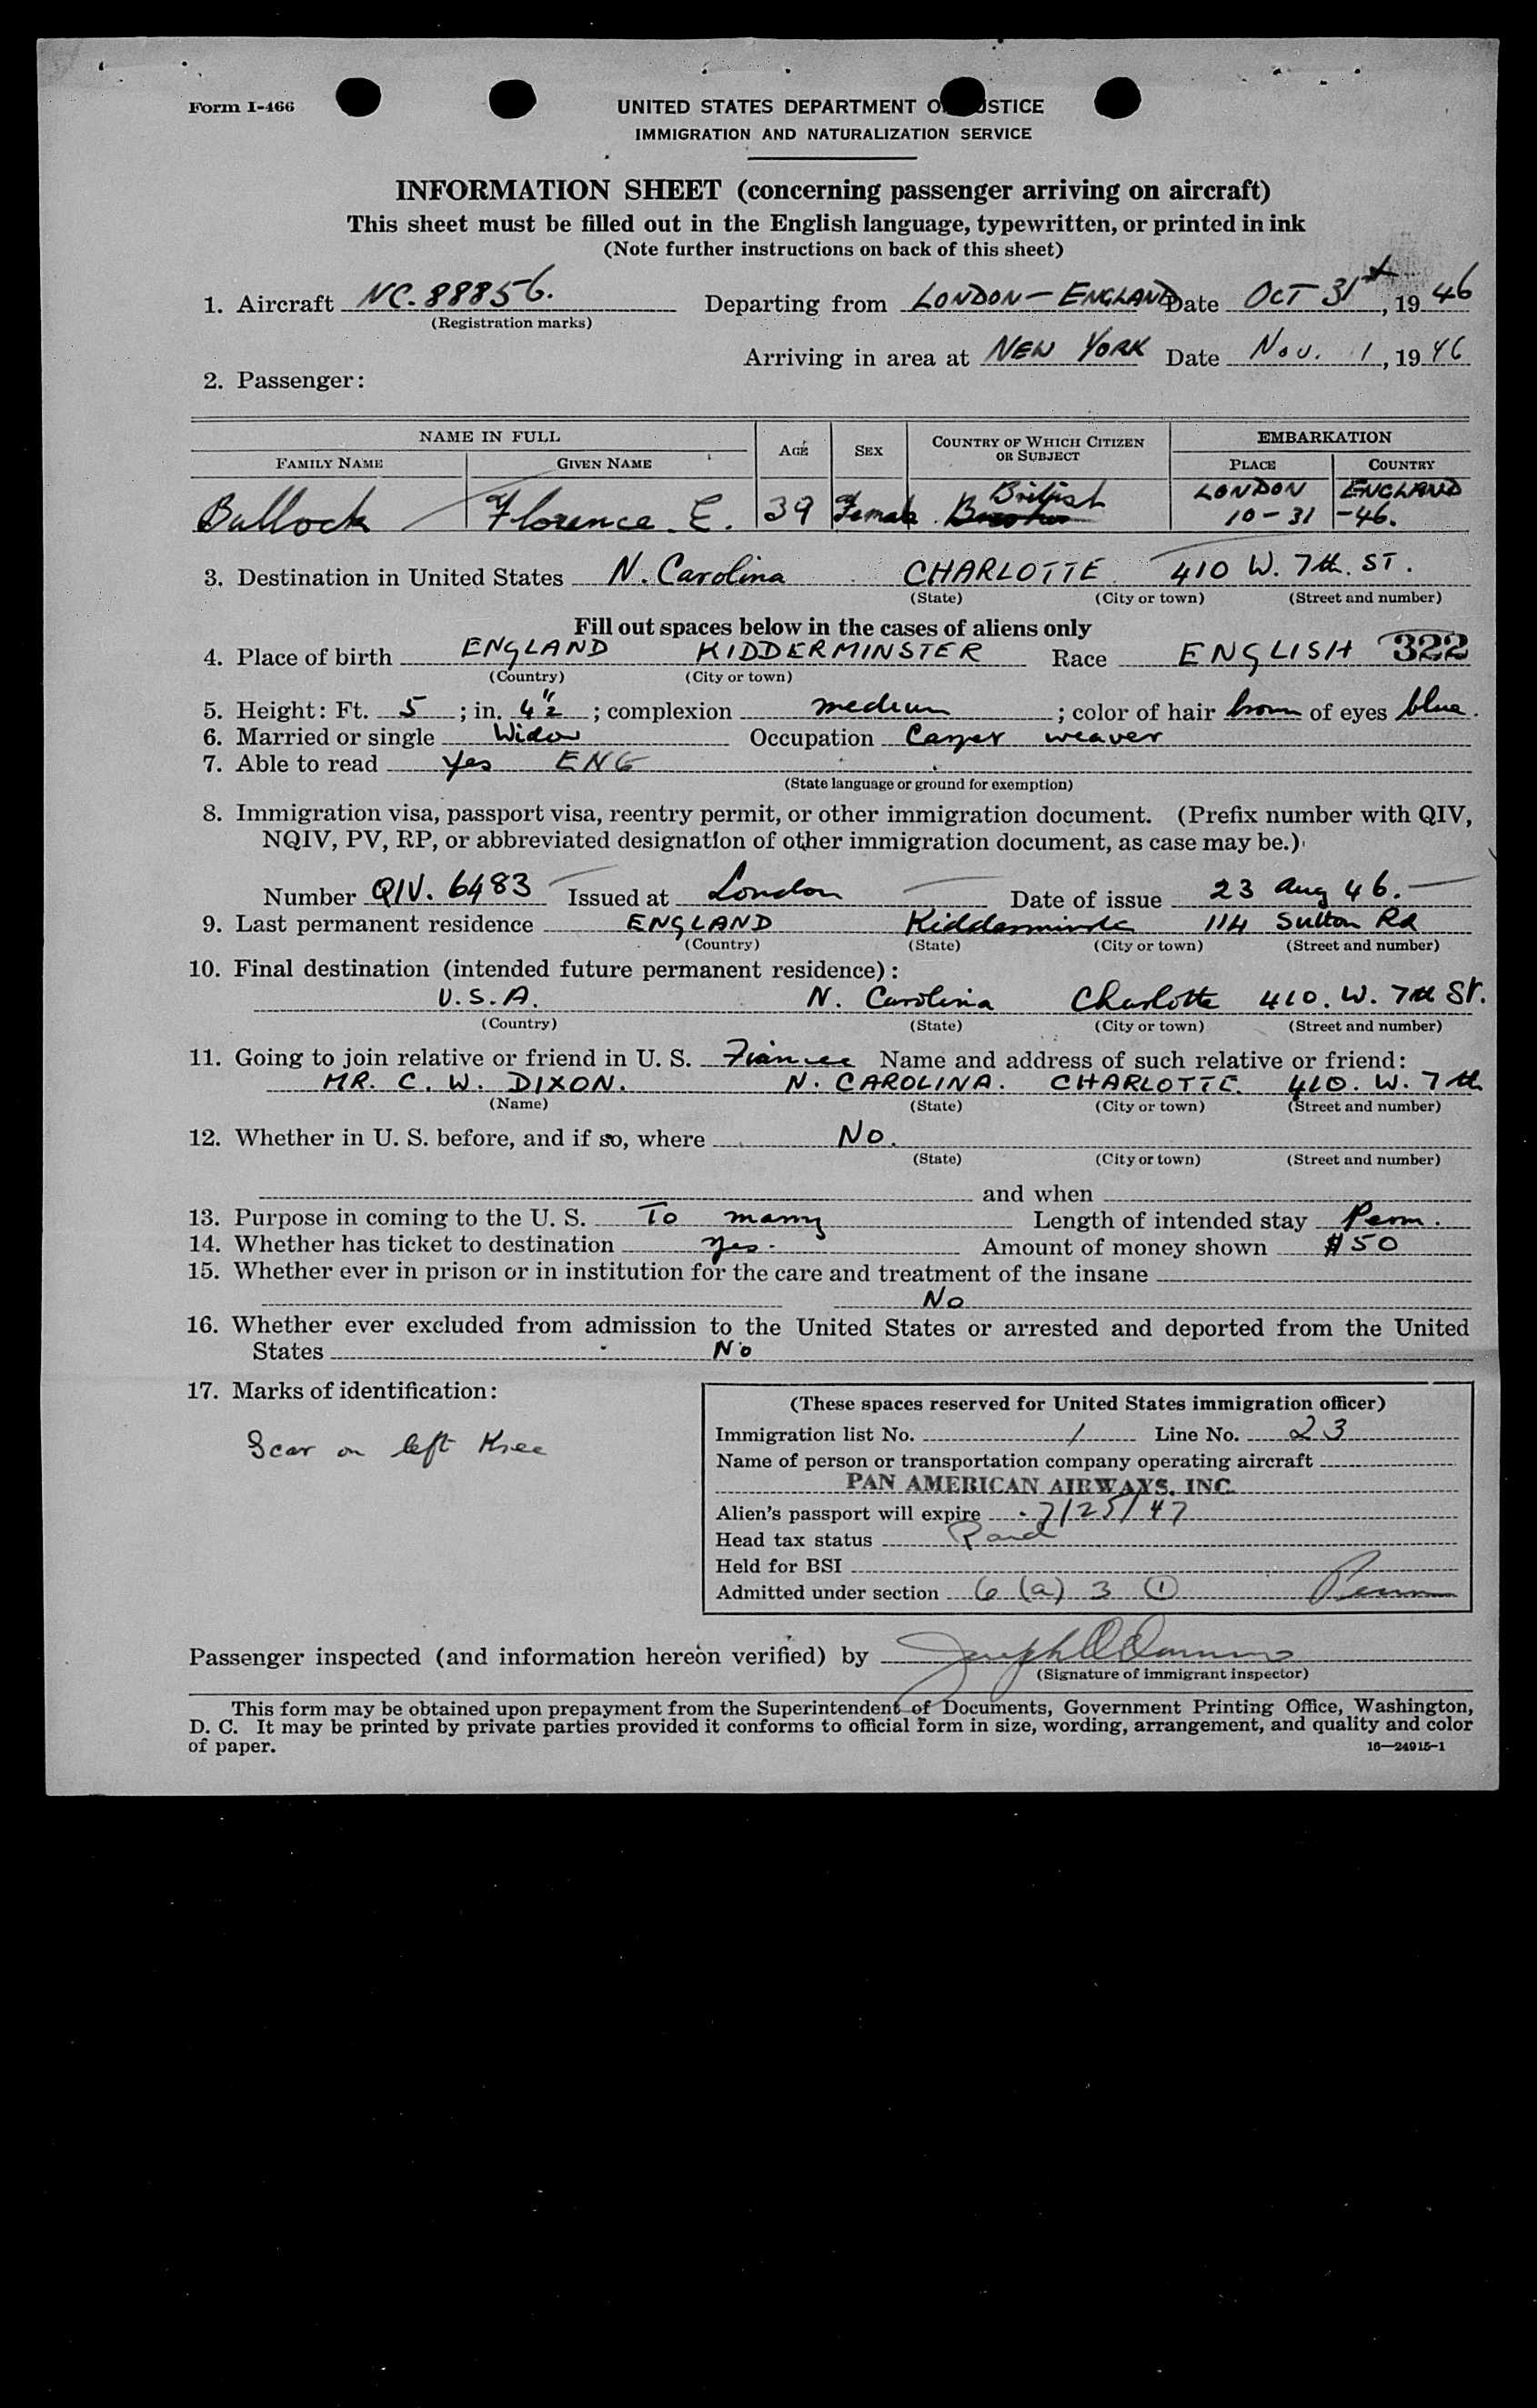 Form I-466
UNITED STATES DEPARTMENT O STICE
IMMIGRATION AND NATURALIZATION SERVICE
INFORMATION SHEET (concerning passenger arriving on aircraft)
This sheet must be filled out in the English language, typewritten, or printed in ink
(Note further instructions on back of this sheet)
1. Aircraft NC. 88856. Departing from LONDON - ENGLAND Date OCT 31st, 1946
(Registration marks)
Arriving in area at NEW YORK Date Nov. 1, 1946
2. Passenger:
NAME IN FULL AGE SEX COUNTRY OF WHICH CITIZEN OR SUBJECT EMBARKATION
FAMILY NAME GIVEN NAME PLACE COUNTRY
British LONDON ENGLAND
Bullock Florence. E. 39 Female 10-31 -46.
3. Destination in United States N. Carolina CHARLOTTE 410 W. 7th. ST.
(State) (City or town) (Street and number)
Fill out spaces below in the cases of aliens only
4. Place of birth ENGLAND KIDDERMINSTER Race ENGLISH 322
(Country) (City or town)
5. Height: Ft. 5 ; in. 4½" ; complexion medium ; color of hair brown of eyes blue.
6. Married or single Widow Occupation Carpet weaver
7. Able to read Yes ENG
(State language or ground for exemption)
8. Immigration visa, passport visa, reentry permit, or other immigration document. (Prefix number with QIV,
NQIV, PV, RP, or abbreviated designation of other immigration document, as case may be.)
Number QIV. 6483 Issued at London Date of issue 23 Aug 46.
9. Last permanent residence ENGLAND Kidderminster 114 Sutton Rd
(Country) (State) (City or town) (Street and number)
10. Final destination (intended future permanent residence):
U.S.A. N. Carolina Charlotte 410. W. 7th St.
(Country) (State) (City or town) (Street and number)
11. Going to join relative or friend in U. S. Fiancee Name and address of such relative or friend:
MR. C. W. DIXON. N. CAROLINA. CHARLOTTE. 410. W. 7th
(Name) (State) (City or town) (Street and number)
12. Whether in U. S. before, and if so, where No.
(State) (City or town) (Street and number)
and when
13. Purpose in coming to the U. S. To marry Length of intended stay Perm.
14. Whether has ticket to destination yes. Amount of money shown $50
15. Whether ever in prison or in institution for the care and treatment of the insane
No
16. Whether ever excluded from admission to the United States or arrested and deported from the United
States No
17. Marks of identification:
Scar on left Knee
(These spaces reserved for United States immigration officer)
Immigration list No. 1 Line No. 23
Name of person or transportation company operating aircraft
PAN AMERICAN AIRWAYS, INC.
Alien's passport will expire 7/25/47
Head tax status Paid
Held for BSI
Admitted under section 6 (a) 3 (1) Perm
Passenger inspected (and information hereon verified) by
(Signature of immigrant inspector)
This form may be obtained upon prepayment from the Superintendent of Documents, Government Printing Office, Washington,
D. C. It may be printed by private parties provided it conforms to official form in size, wording, arrangement, and quality and color
of paper.
16—24915-1